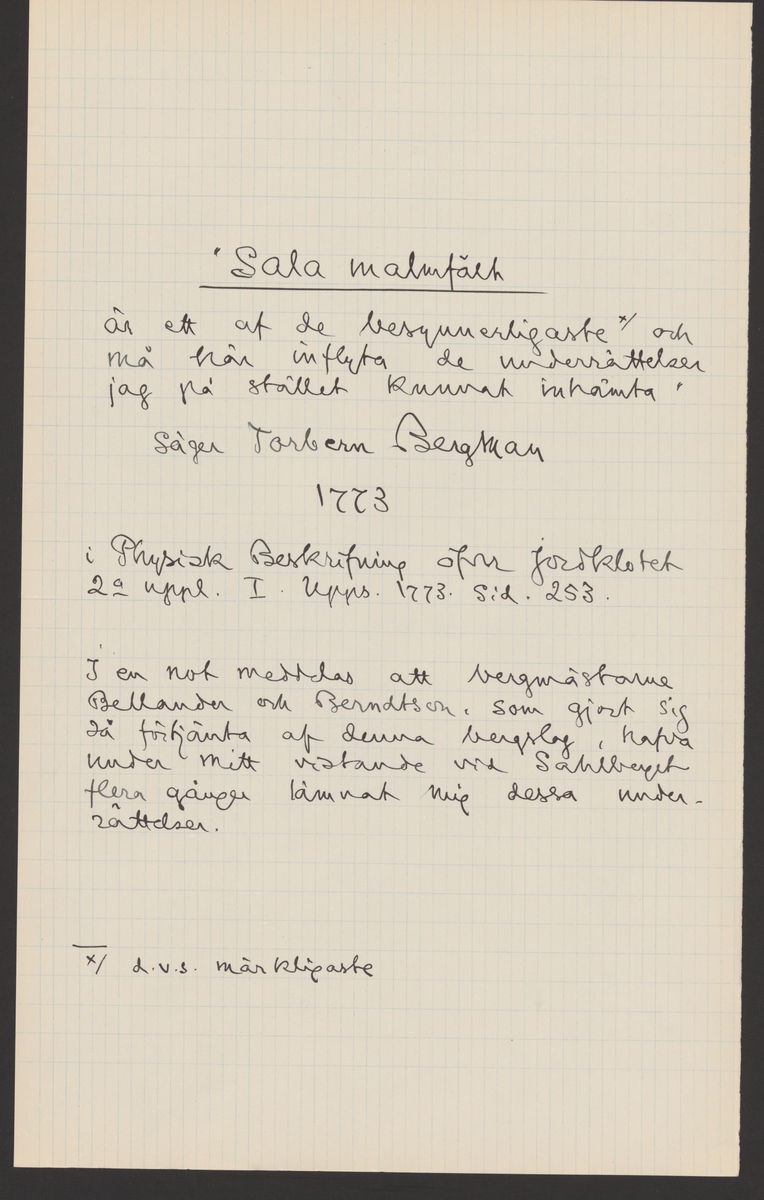 "Sala malmfält
är ett af de besynnerligaste x/ och
må här inflyta de underrättelser
jag på stället kunnat inhämta"
säger Torbern Bergman
1773
i Physisk Beskrifning öfver jordklotet
2a uppl. I. Upps. 1773. Sid. 253.
I en not meddelas att bergmästarne
Bellander och Berndtson, som gjort sig
så förtjänta af denna bergslag, hafva
under mitt vistande vid Sahlberget
flera gånger lämnat mig dessa under-
rättelser.
x/ d.v.s. märkligaste